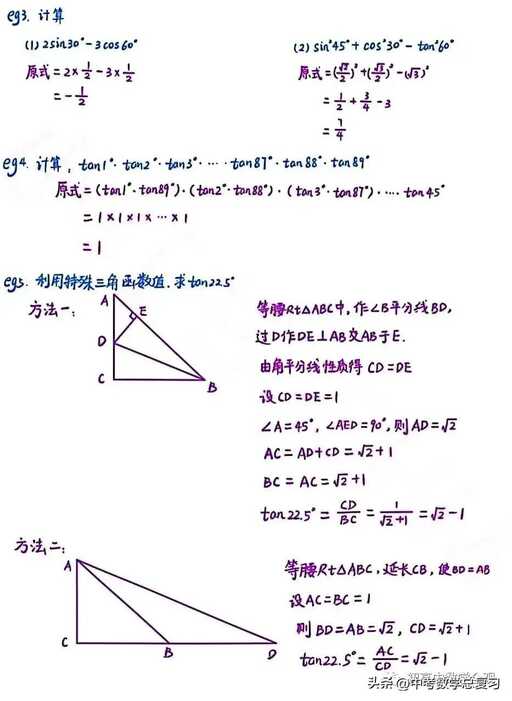 eg3. 计算
(1) 2sin30° - 3cos60°
原式 = 2 × 1/2 - 3 × 1/2
= -1/2
(2) sin²45° + cos²30° - tan²60°
原式 = (√2/2)² + (√3/2)² - (√3)²
= 1/2 + 3/4 - 3
= 7/4
eg4. 计算, tan1°·tan2°·tan3°·…·tan87°·tan88°·tan89°
原式 = (tan1°·tan89°)·(tan2°·tan88°)·(tan3°·tan87°)·…·tan45°
= 1×1×1×…×1
= 1
eg5. 利用特殊三角函数值,求tan22.5°
方法一:
A
E
D
C
B
等腰Rt△ABC中,作∠B平分线BD,
过D作DE⊥AB交AB于E.
由角平分线性质得 CD=DE
设CD=DE=1
∠A=45°, ∠AED=90°, 则AD=√2
AC = AD+CD = √2+1
BC = AC = √2+1
tan22.5° = CD/BC = 1/(√2+1) = √2-1
方法二:
A
C
B
D
等腰Rt△ABC, 延长CB, 使BD=AB
设AC=BC=1
则 BD=AB=√2, CD=√2+1
tan22.5° = AC/CD = √2-1
头条@中考数学总复习